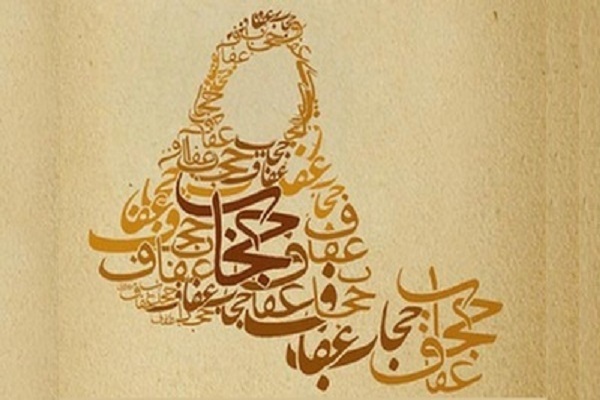 حجاب عفاف
حجاب
عفاف
حجاب
عفاف
حجاب
عفاف
حجاب
عفاف
حجاب
عفاف
حجاب
عفاف
حجاب
عفاف
حجاب
عفاف
حجاب
عفاف
حجاب
عفاف
حجاب
عفاف